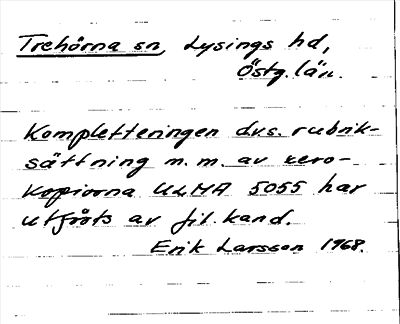 Trehörna sn, Lysings hd,
Östg. län.
Kompletteringen dvs. rubrik-
sättning m. m. av xero-
kopiorna ULMA 5055 har
utförts av fil. kand.
Erik Larsson 1968.